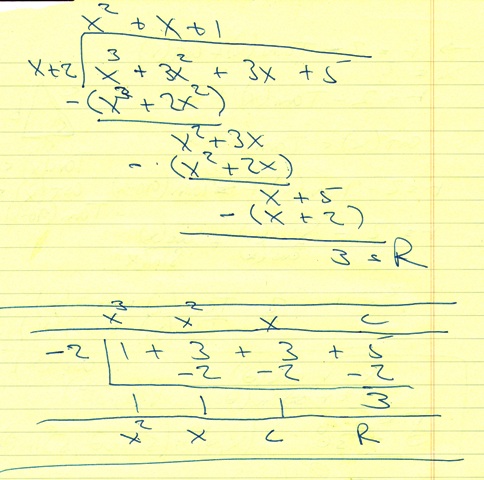 x² + x + 1
x+2 x³ + 3x² + 3x + 5
-(x³ + 2x²)
x² + 3x
-(x² + 2x)
x + 5
-(x + 2)
3 = R
x³ x² x c
-2 1 + 3 + 3 + 5
-2 -2 -2
1 1 1 3
x² x c R